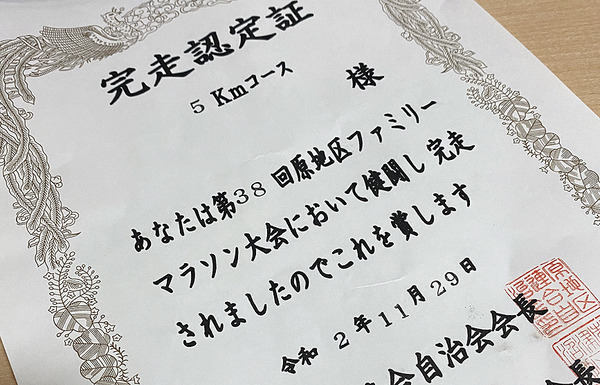 完走認定証
5 Kmコース
様
あなたは第38 回原地区ファミリー
マラソン大会において健闘し 完走
されましたのでこれを賞します
令和 2 年11 月 29 日
合自治会会長
会長